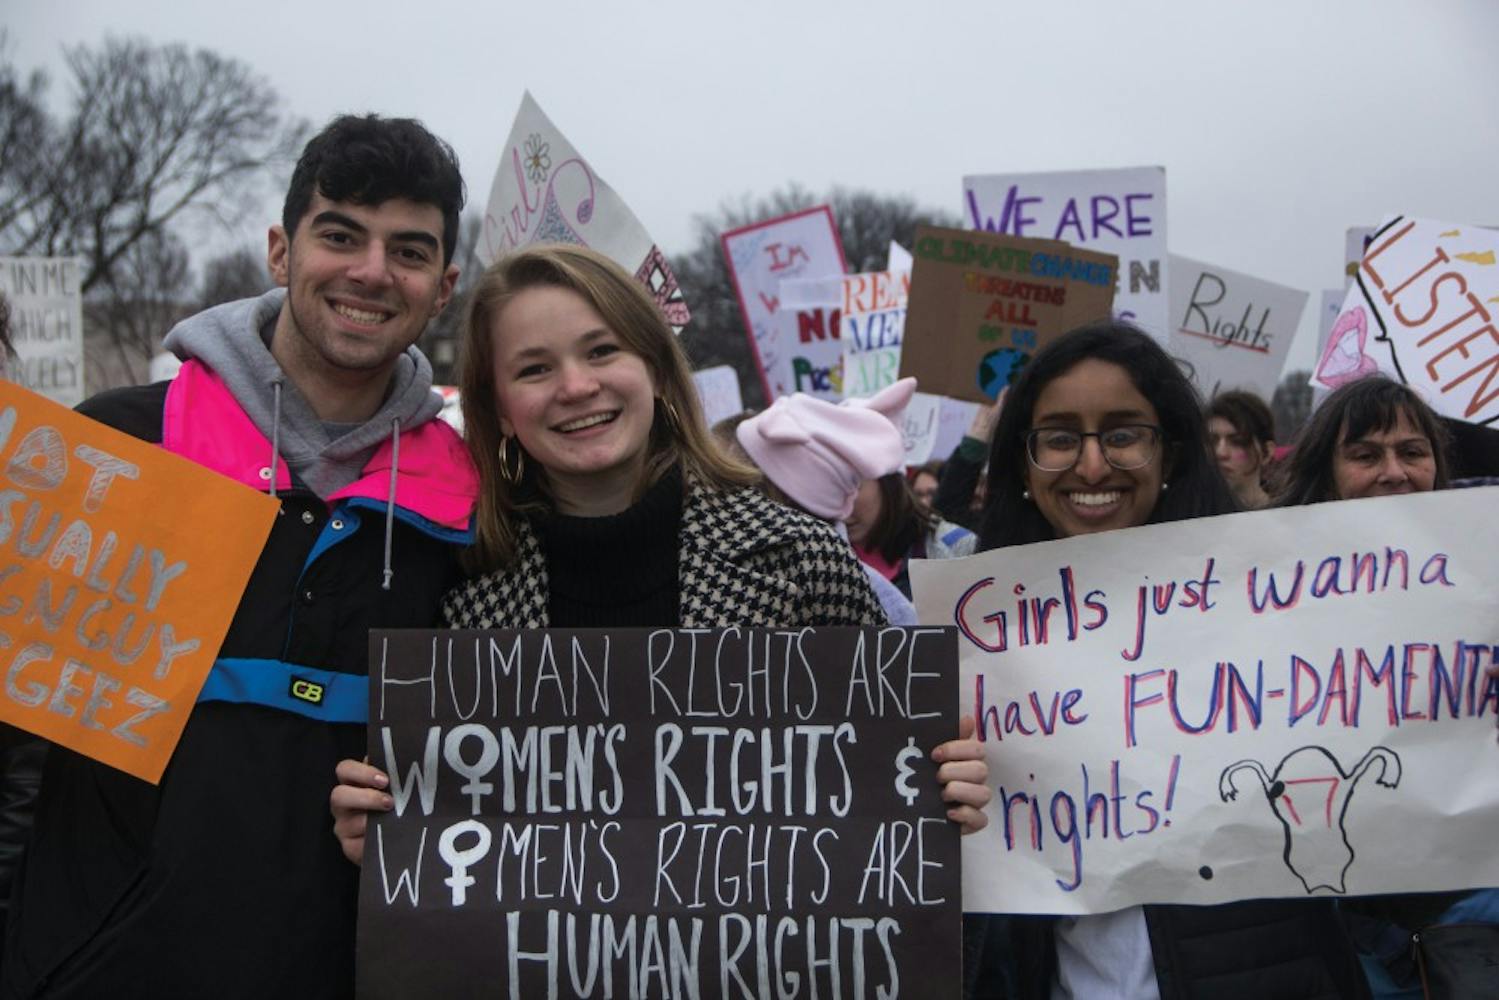 IN ME
WHICH
Girl
WE ARE
CLIMATE CHANGE
THREATENS
ALL
OF US
I'M
REA
ME
AR
Rights
LISTEN
OT
SUALLY
GN GUY
GEEZ
GB
HUMAN RIGHTS ARE
WOMEN'S RIGHTS &
WOMEN'S RIGHTS ARE
HUMAN RIGHTS
Girls just wanna
have FUN-DAMENTA
rights!